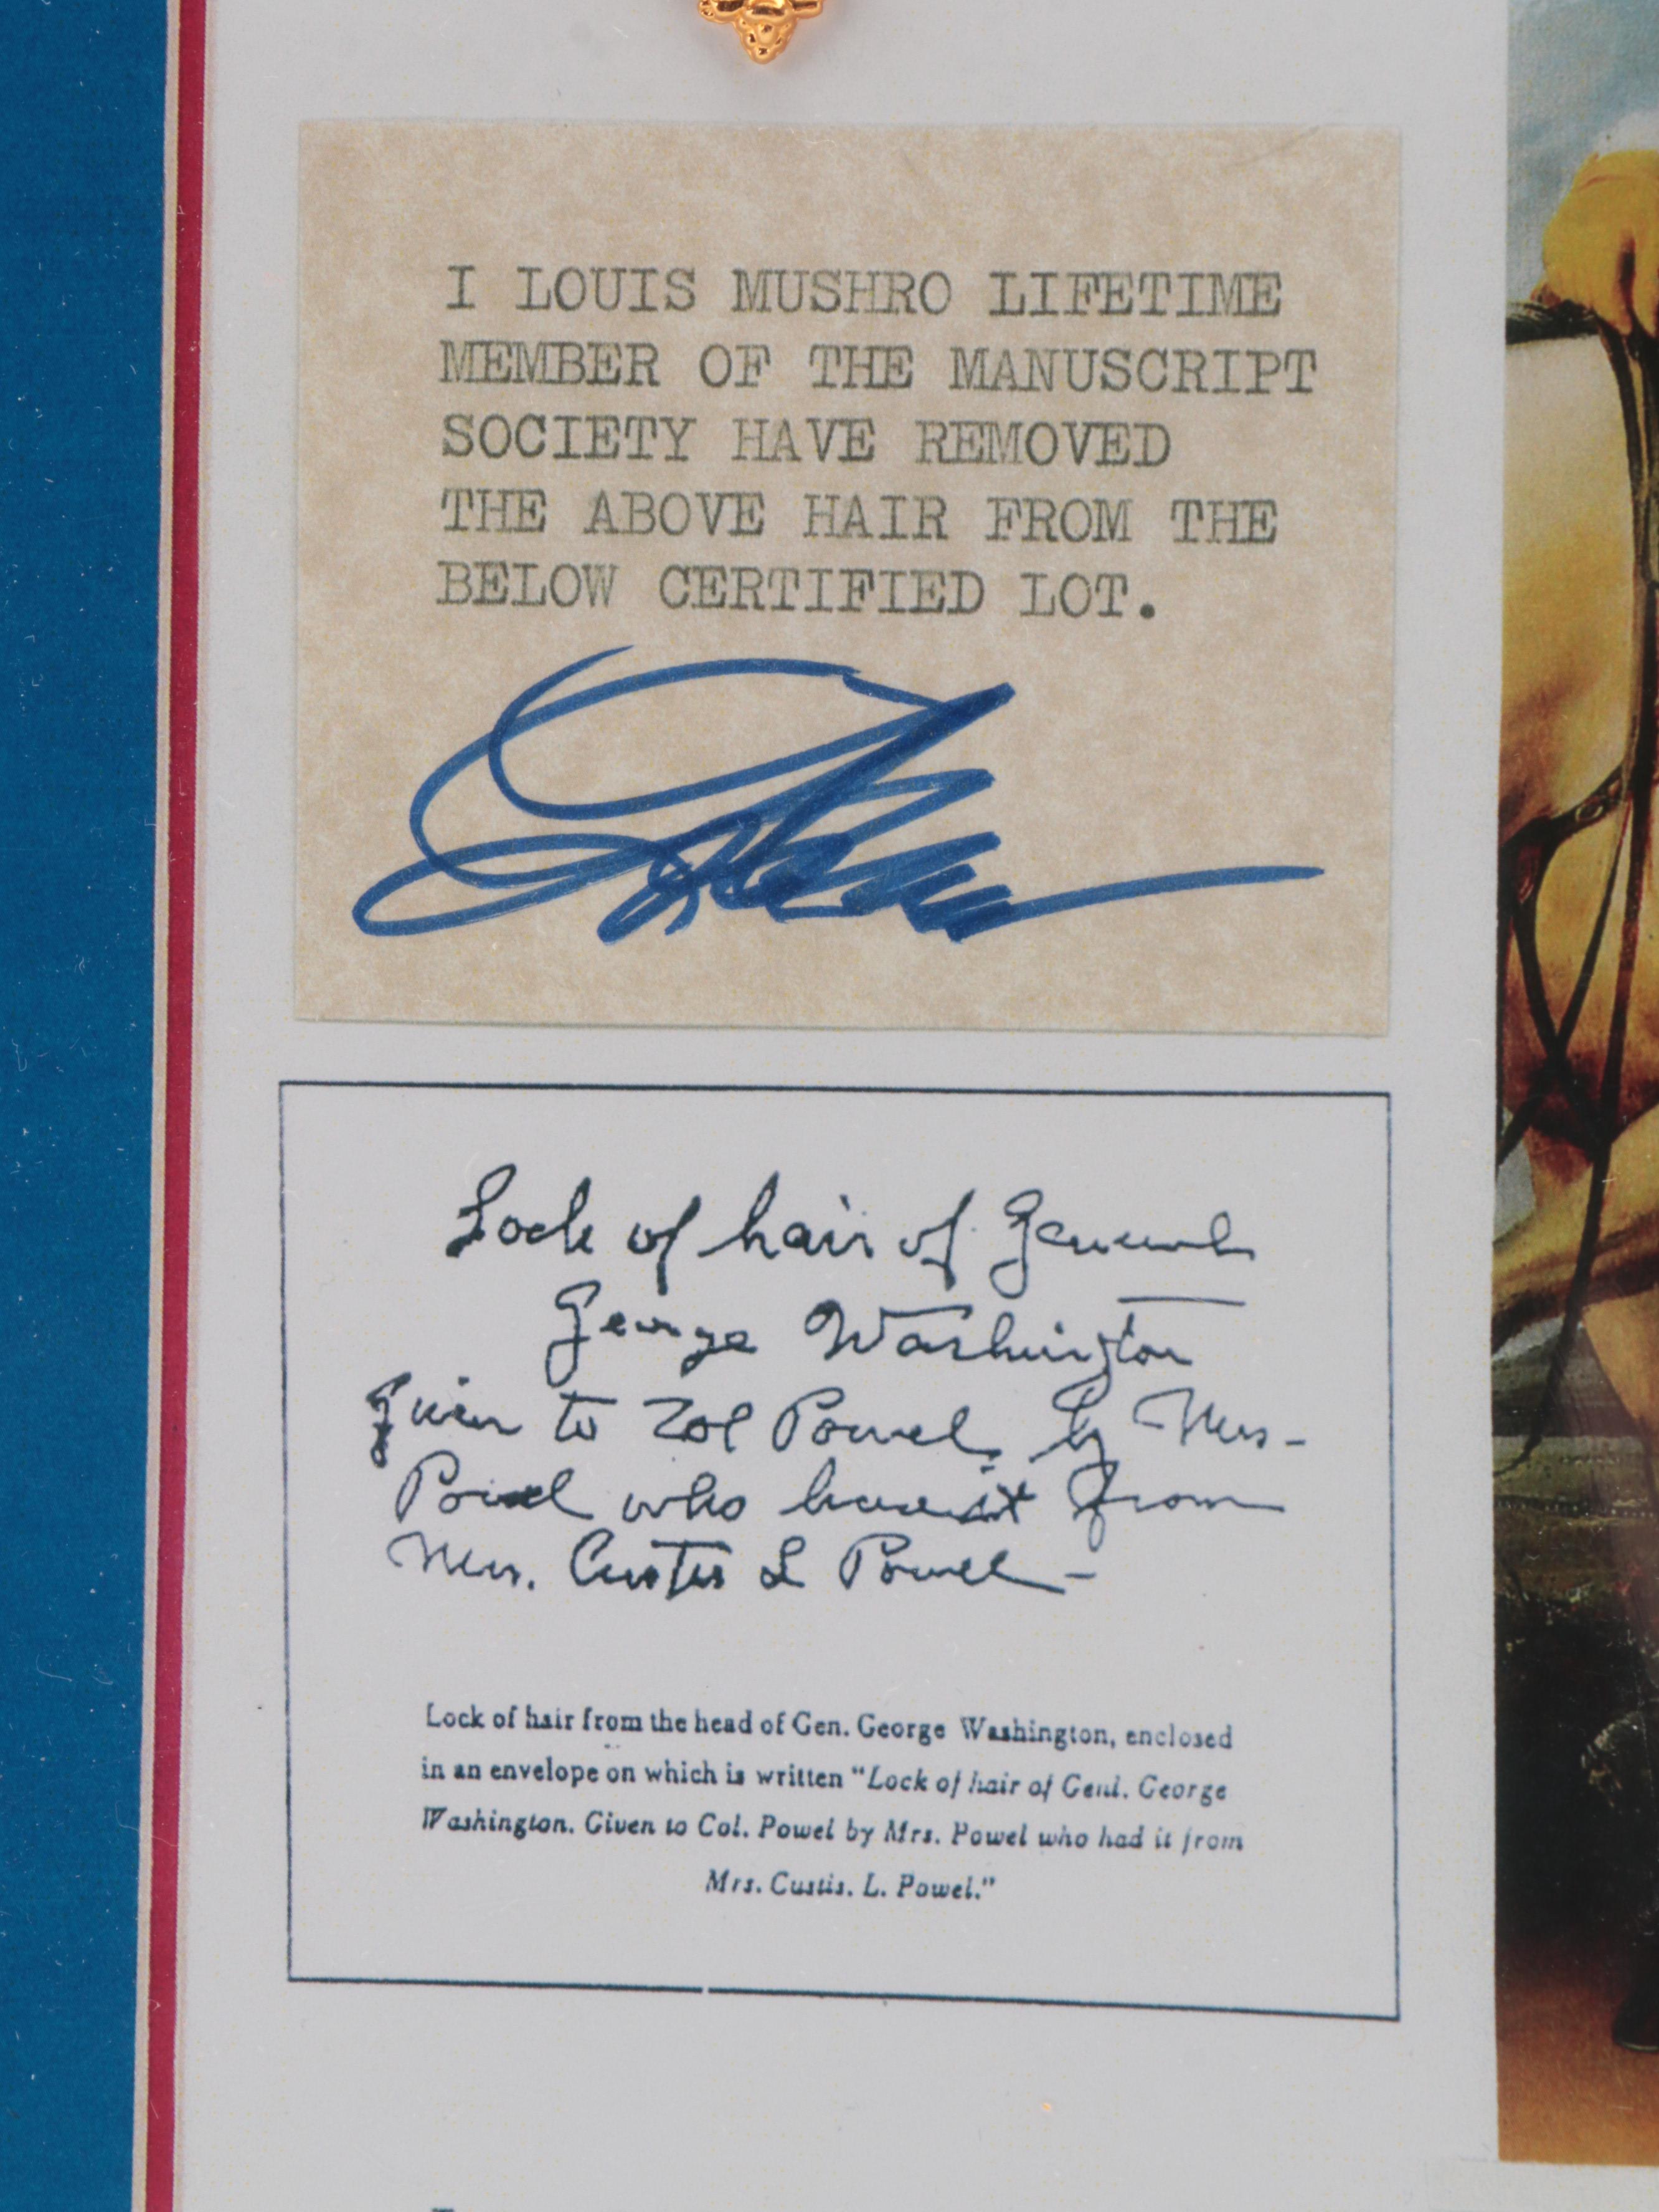 I LOUIS MUSHRO LIFETIME
MEMBER OF THE MANUSCRIPT
SOCIETY HAVE REMOVED
THE ABOVE HAIR FROM THE
BELOW CERTIFIED LOT.
Lock of hair of General
George Washington
given to Col Powel by Mrs.
Powel who had it from
Mrs. Custis L Powel -
Lock of hair from the head of Gen. George Washington, enclosed
in an envelope on which is written "Lock of hair of Genl. George
Washington. Given to Col. Powel by Mrs. Powel who had it from
Mrs. Custis. L. Powel."